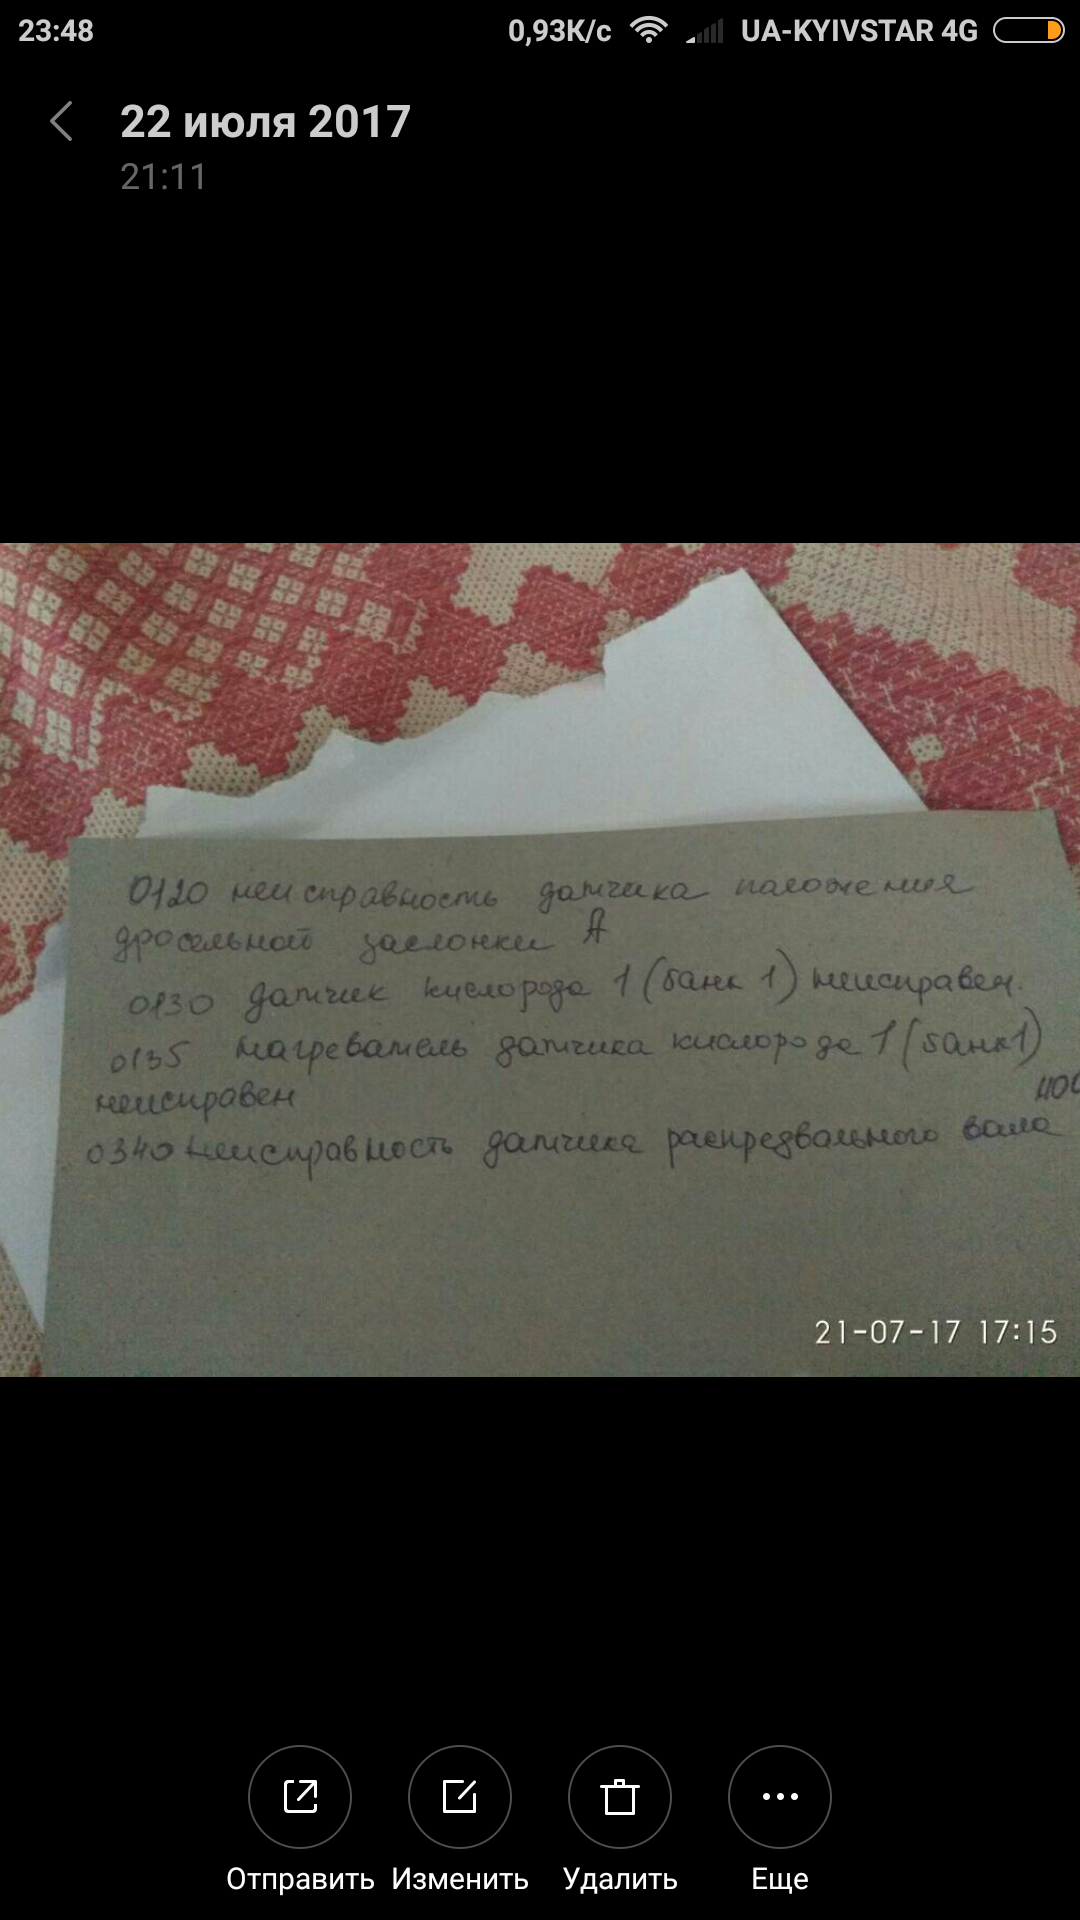 23:48 0,93К/с UA-KYIVSTAR 4G
22 июля 2017
21:11
0120 неисправность датчика положения
дросельной заслонки А
0130 Датчик кислорода 1 (банк 1) неисправен.
0135 Нагреватель датчика кислорода 1 (банк 1)
неисправен
0340 Неисправность датчика распредвального вала
21-07-17 17:15
Отправить Изменить Удалить Еще